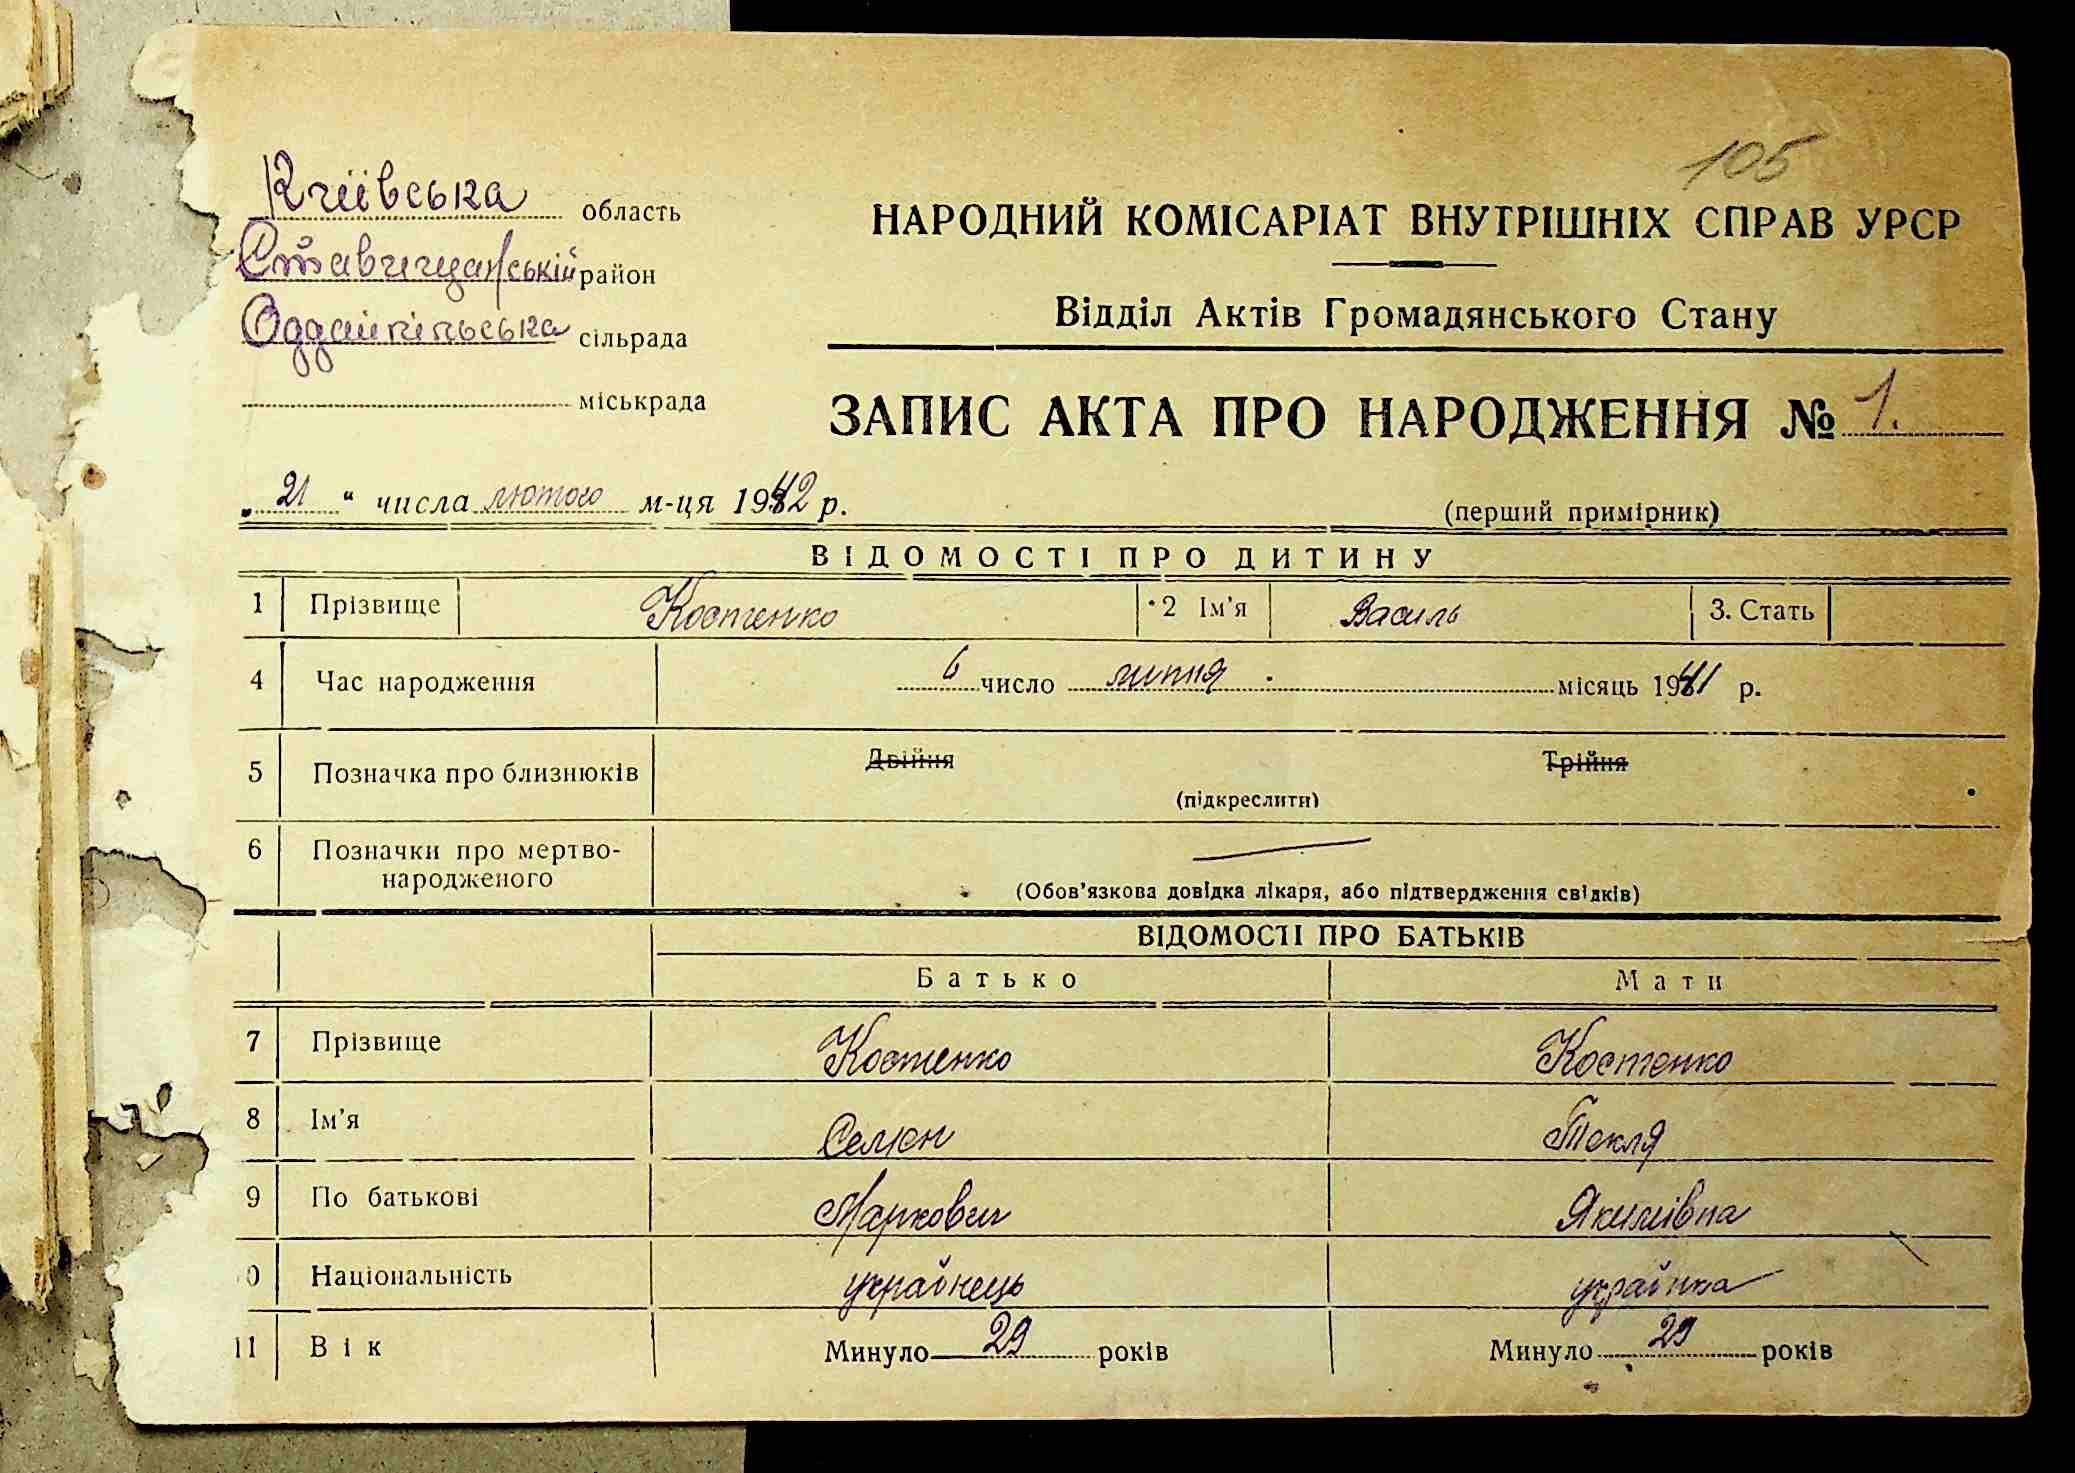 105
Київська область
Ставищанській район
Оддайпільська сільрада
міськрада
НАРОДНИЙ КОМІСАРІАТ ВНУТРІШНІХ СПРАВ УРСР
Відділ Актів Громадянського Стану
ЗАПИС АКТА ПРО НАРОДЖЕННЯ № 1.
„21“ числа лютого м-ця 1942 р.
(перший примірник)
ВІДОМОСТІ ПРО ДИТИНУ
1 Прізвище Костенко 2 Ім'я Василь 3. Стать
4 Час народження 6 число липня місяць 1941 р.
5 Позначка про близнюків Двійня Трійня
(підкреслити)
6 Позначки про мертво-
народженого
(Обов'язкова довідка лікаря, або підтвердження свідків)
ВІДОМОСТІ ПРО БАТЬКІВ
Батько Мати
7 Прізвище Костенко Костенко
8 Ім'я Семен Текля
9 По батькові Маркович Якимівна
0 Національність українець українка
11 Вік Минуло 29 років Минуло 29 років